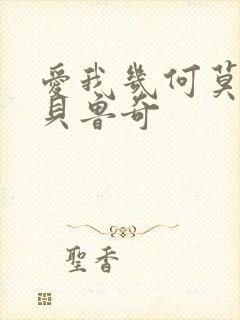 愛我幾何莫
貝魯奇
聖香